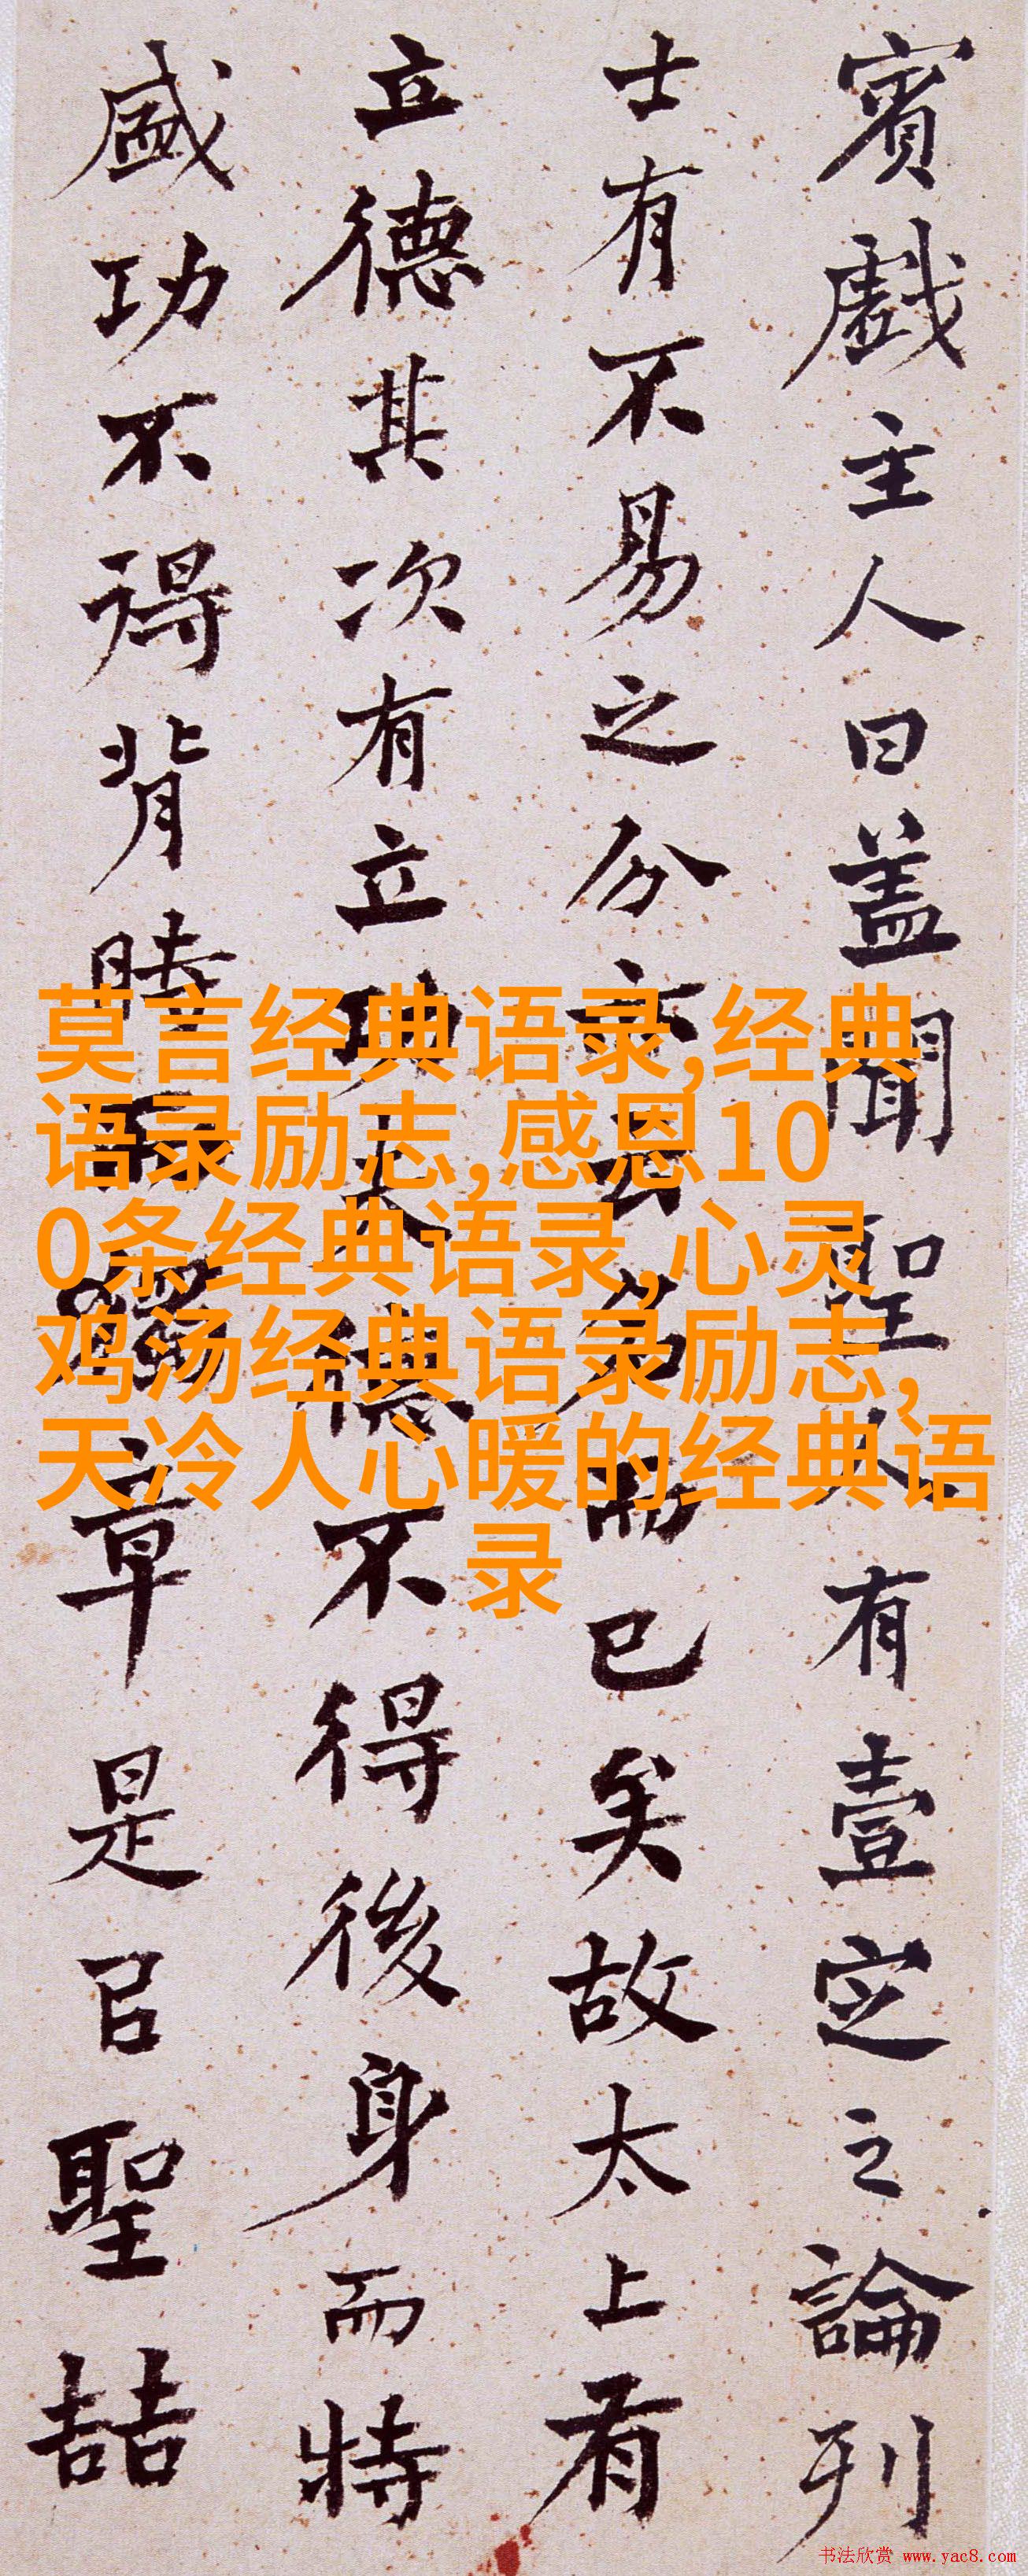 賓戲主人曰盖聞聖人有壹定之論列
士有不易之分亦云名而已矣故太上有
立德其次有立功夫德不得後身而特
盛功不得背時而獨章是㠯聖喆
莫言经典语录,经典
语录励志,感恩10
0条经典语录,心灵
鸡汤经典语录励志,
天冷人心暖的经典语
录
书法欣赏 www.yac8.com